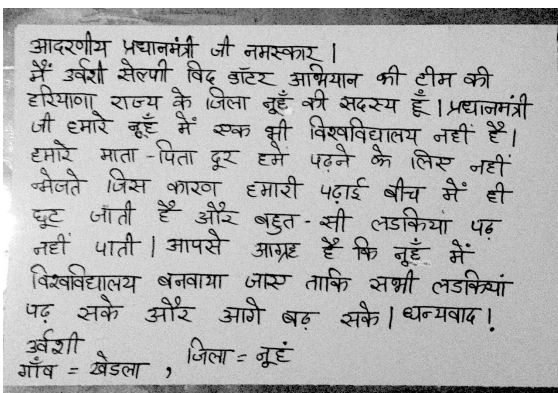 आदरणीय प्रधानमंत्री जी नमस्कार |
मैं उर्वशी सेल्फी विद डॉटर अभियान की टीम की
हरियाणा राज्य के जिला नूहँ की सदस्य हूँ | प्रधानमंत्री
जी हमारे नूहँ में एक भी विश्वविद्यालय नहीं है |
हमारे माता - पिता दूर हमें पढ़ने के लिए नहीं
भेजते जिस कारण हमारी पढ़ाई बीच में ही
छूट जाती है और बहुत - सी लडकियां पढ़
नहीं पाती | आपसे आग्रह है कि नूहँ में
विश्वविद्यालय बनवाया जाए ताकि सभी लडकियां
पढ़ सके और आगे बढ़ सके | धन्यवाद !
उर्वशी
गाँव = खेडला , जिला = नूहं